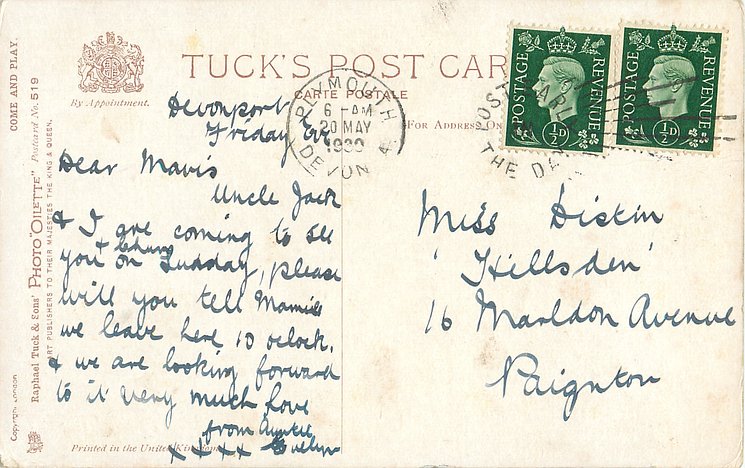 TUCK'S POST CARD
CARTE POSTALE
By Appointment.
For Address On
COME AND PLAY.
Raphael Tuck & Sons' PHOTO "OILETTE" Postcard No. 519
ART PUBLISHERS TO THEIR MAJESTIES THE KING & QUEEN.
PLYMOUTH
6 - AM
20 MAY
DEVON A
POSTAGE REVENUE
½D
POSTAGE REVENUE
½D
POST EAR
THE DA
Devonport
Friday Eve
Dear Mavis
Uncle Jack
& I are coming to see
you + on Sunday, please
will you tell Mamie
we leave here 10 oclock,
& we are looking forward
to it very much love
from Auntie
x x x x Evelyn
Miss Hiskin
'Hillsden'
16 Marldon Avenue
Paignton
Printed in the United Kingdom